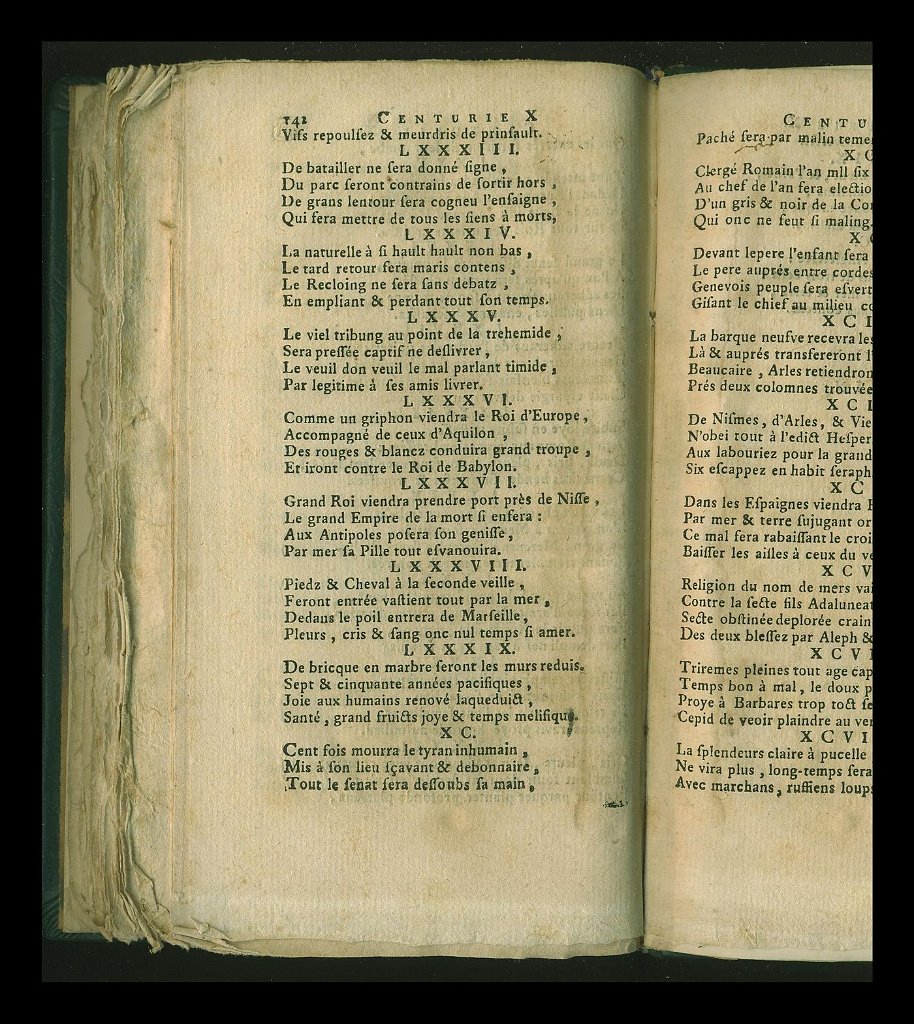 142 CENTURIE X
Vifs repoulſez & meurdris de prinſault.
LXXXIII.
De batailler ne ſera donné ſigne,
Du parc ſeront contrains de ſortir hors,
De grans lentour ſera cogneu l'enſaigne,
Qui fera mettre de tous les ſiens à morts,
LXXXIV.
La naturelle à ſi hault hault non bas,
Le tard retour fera maris contens,
Le Recloing ne ſera ſans debatz,
En empliant & perdant tout ſon temps.
LXXXV.
Le viel tribung au point de la trehemide,
Sera preſſée captif ne deſlivrer,
Le veuil don veuil le mal parlant timide,
Par legitime à ſes amis livrer.
LXXXVI.
Comme un griphon viendra le Roi d'Europe,
Accompagné de ceux d'Aquilon,
Des rouges & blancz conduira grand troupe,
Et iront contre le Roi de Babylon.
LXXXVII.
Grand Roi viendra prendre port près de Niſſe,
Le grand Empire de la mort ſi enfera :
Aux Antipoles poſera ſon geniſſe,
Par mer ſa Pille tout eſvanouira.
LXXXVIII.
Piedz & Cheval à la ſeconde veille,
Feront entrée vaſtient tout par la mer,
Dedans le poil entrera de Marſeille,
Pleurs, cris & ſang onc nul temps ſi amer.
LXXXIX.
De bricque en marbre ſeront les murs reduis.
Sept & cinquante années pacifiques,
Joie aux humains renové laqueduict,
Santé, grand fruicts joye & temps melifique.
XC.
Cent fois mourra le tyran inhumain,
Mis à ſon lieu ſçavant & debonnaire,
Tout le ſenat ſera deſſoubs ſa main,
CENTU
Paché ſera par malin teme
XC
Clergé Romain l'an mil ſix
Au chef de l'an fera electio
D'un gris & noir de la Co
Qui onc ne feut ſi maling
XC
Devant lepere l'enfant ſera
Le pere auprés entre cordes
Genevois peuple ſera eſvert
Giſant le chief au milieu c
XCI
La barque neufve recevra les
Là & auprés transfereront l'
Beaucaire, Arles retiendron
Prés deux colomnes trouvée
XCI
De Niſmes, d'Arles, & Vie
N'obei tout à l'edict Heſper
Aux labouriez pour la grand
Six eſcappez en habit ſeraph
XC
Dans les Eſpaignes viendra
Par mer & terre ſujugant or
Ce mal fera rabaiſſant le croi
Baiſſer les aiſles à ceux du ve
XCV
Religion du nom de mers vai
Contre la ſecte fils Adaluneat
Secte obſtinée deplorée crain
Des deux bleſſez par Aleph &
XCVI
Triremes pleines tout age cap
Temps bon à mal, le doux p
Proye à Barbares trop toſt ſe
Cepid de veoir plaindre au ve
XCVI
La ſplendeurs claire à pucelle
Ne vira plus, long-temps ſera
Avec marchans, ruffiens loups